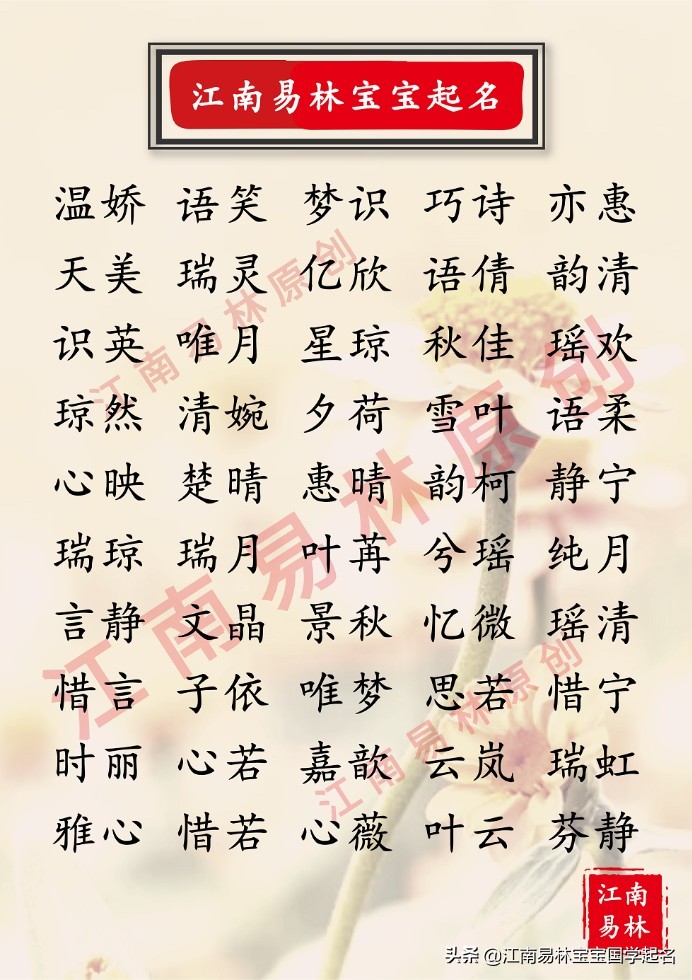 江南易林宝宝起名
温娇 语笑 梦识 巧诗 亦惠
天美 瑞灵 亿欣 语倩 韵清
识英 唯月 星琼 秋佳 瑶欢
琼然 清婉 夕荷 雪叶 语柔
心映 楚晴 惠晴 韵柯 静宁
瑞琼 瑞月 叶苒 兮瑶 纯月
言静 文晶 景秋 忆微 瑶清
惜言 子依 唯梦 思若 惜宁
时丽 心若 嘉歆 云岚 瑞虹
雅心 惜若 心薇 叶云 芬静
江南易林原创
江南易林原创
江南易林原创
江南
易林
头条 @江南易林宝宝国学起名